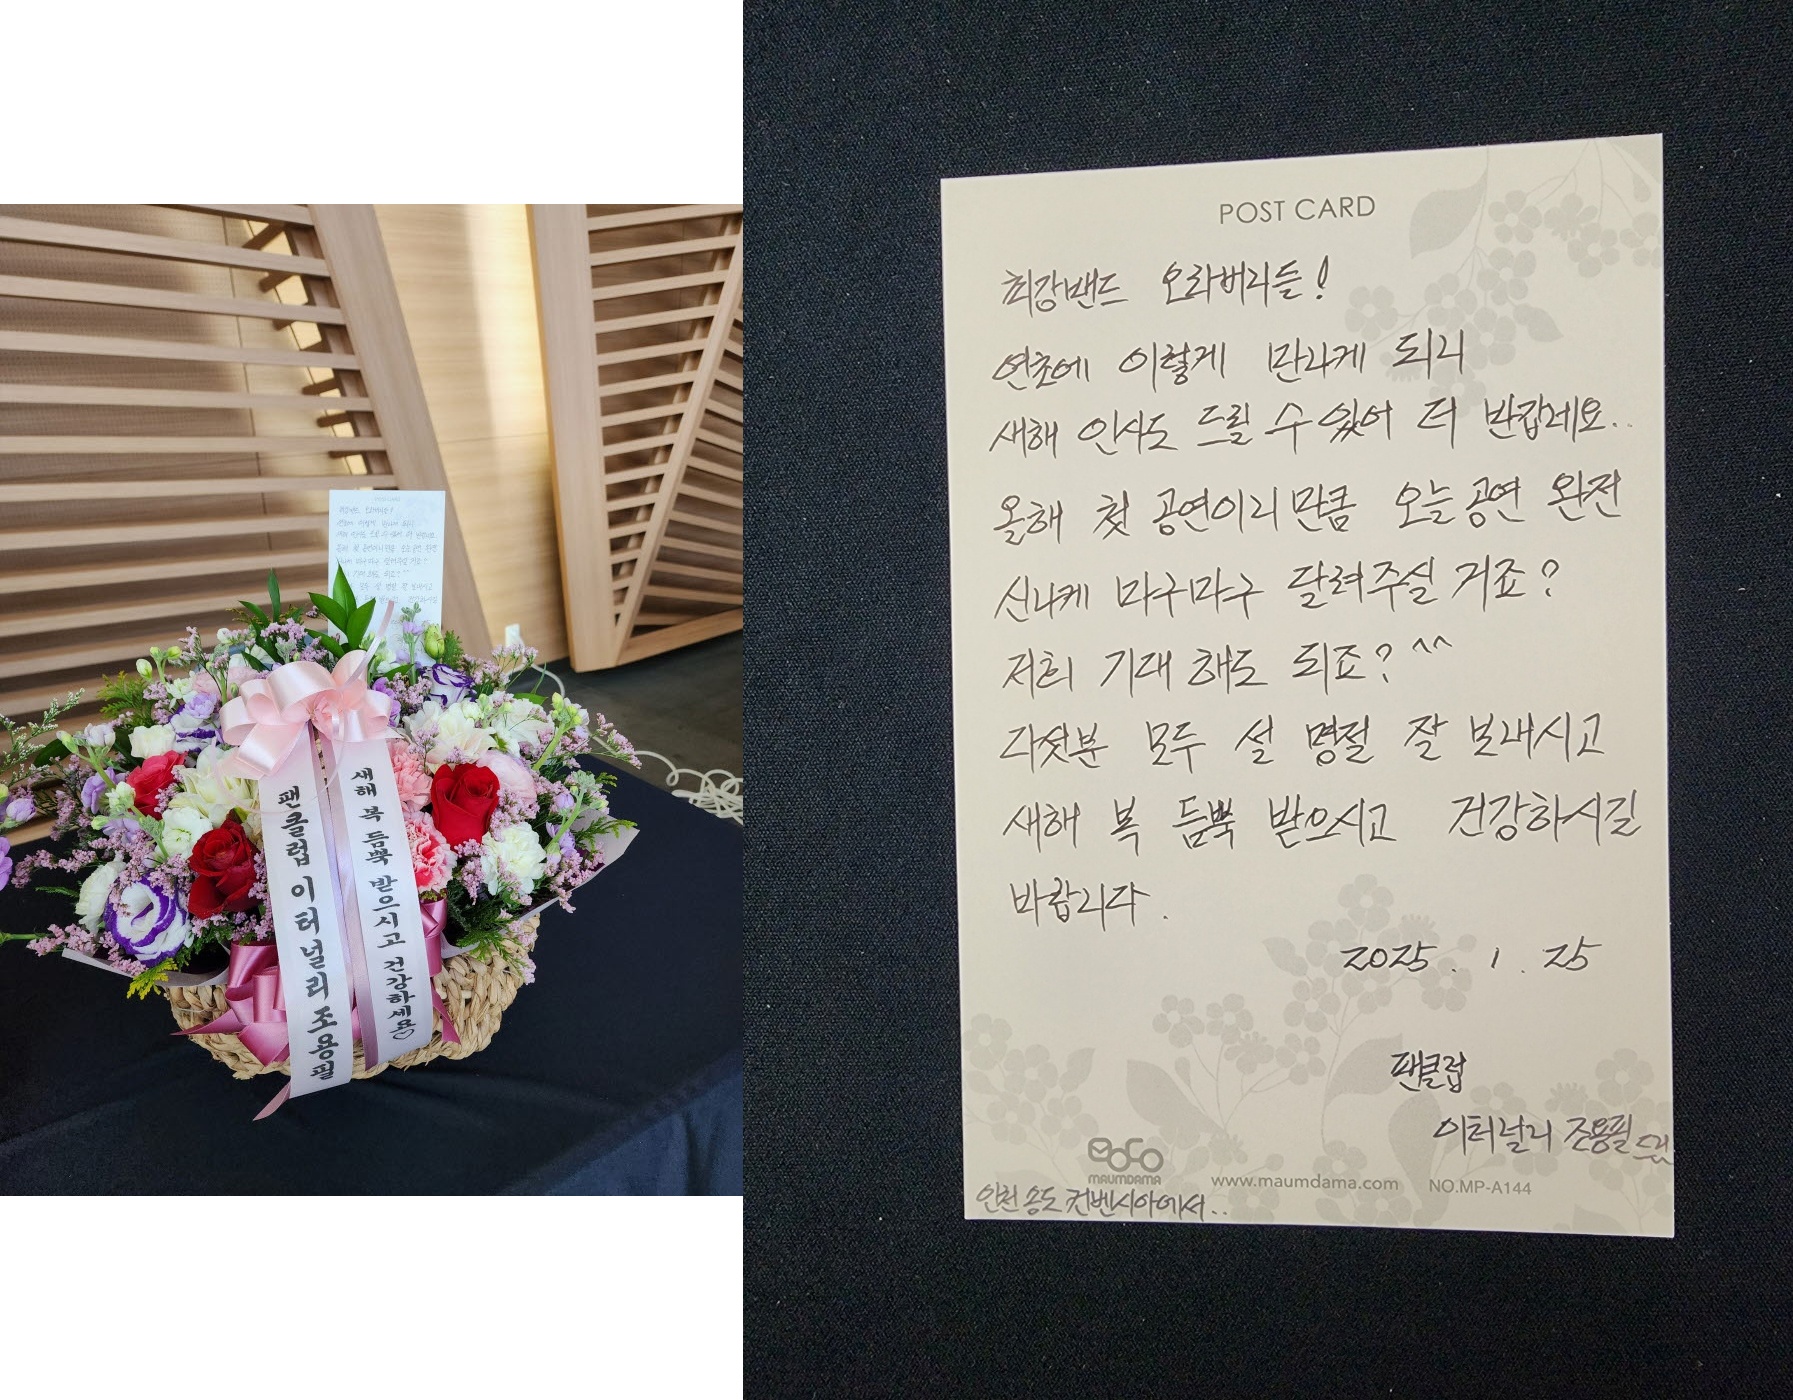 새해 복 듬뿍 받으시고 건강하세요♡
팬클럽 이터널리 조용필
POST CARD
최강밴드 오라버니들!
연초에 이렇게 만나게 되니
새해 인사도 드릴 수 있어 더 반갑네요..
올해 첫 공연이니만큼 오늘공연 완전
신나게 마구마구 달려주실 거죠?
저희 기대 해도 되죠? ^^
다섯분 모두 설 명절 잘 보내시고
새해 복 듬뿍 받으시고 건강하시길
바랍니다.
2025. 1. 25
팬클럽
이터널리 조용필 드림
MAUMDAMA www.maumdama.com NO.MP-A144
인천 송도 컨벤시아에서..